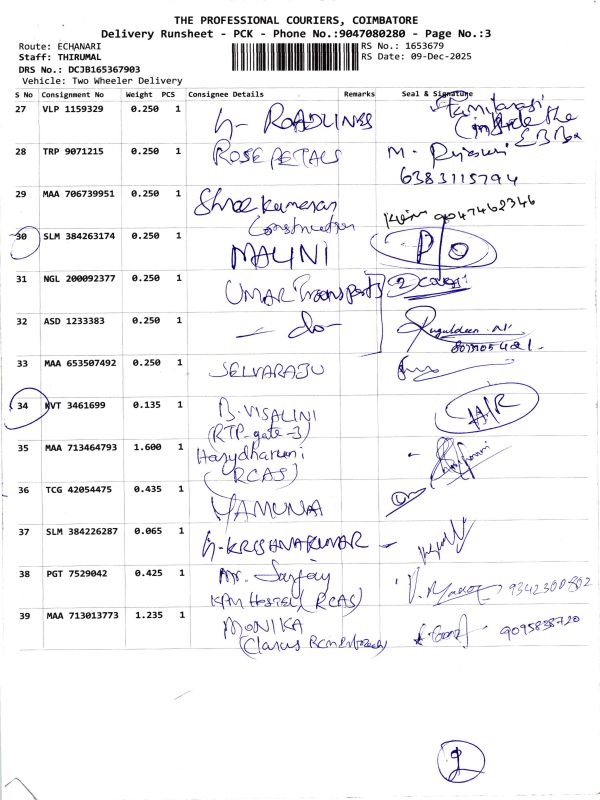 THE PROFESSIONAL COURIERS, COIMBATORE
Delivery Runsheet - PCK - Phone No.:9047080280 - Page No.:3
Route: ECHANARI RS No.: 1653679
Staff: THIRUMAL RS Date: 09-Dec-2025
DRS No.: DCJB165367903
Vehicle: Two Wheeler Delivery
S No Consignment No Weight PCS Consignee Details Remarks Seal & Signature
27 VLP 1159329 0.250 1 ROADLINES
28 TRP 9071215 0.250 1 ROSE PETALS M.
6383115794
29 MAA 706739951 0.250 1 Shree Kumaran 9047462346
Construction
30 SLM 384263174 0.250 1 MALINI P/O
31 NGL 200092377 0.250 1 UMAR Transport
32 ASD 1233383 0.250 1 - do -
33 MAA 653507492 0.250 1 SELVARAJU
34 NVT 3461699 0.135 1 B. VISALINI
(RTP-gate-3)
35 MAA 713464793 1.600 1
(RCAS)
36 TCG 42054475 0.435 1 YAMUNA
37 SLM 384226287 0.065 1 KRISHNAKUMAR
38 PGT 7529042 0.425 1 Mr. Sanjay
Hostel (RCAS)
39 MAA 713013773 1.235 1 MONIKA 9095838720